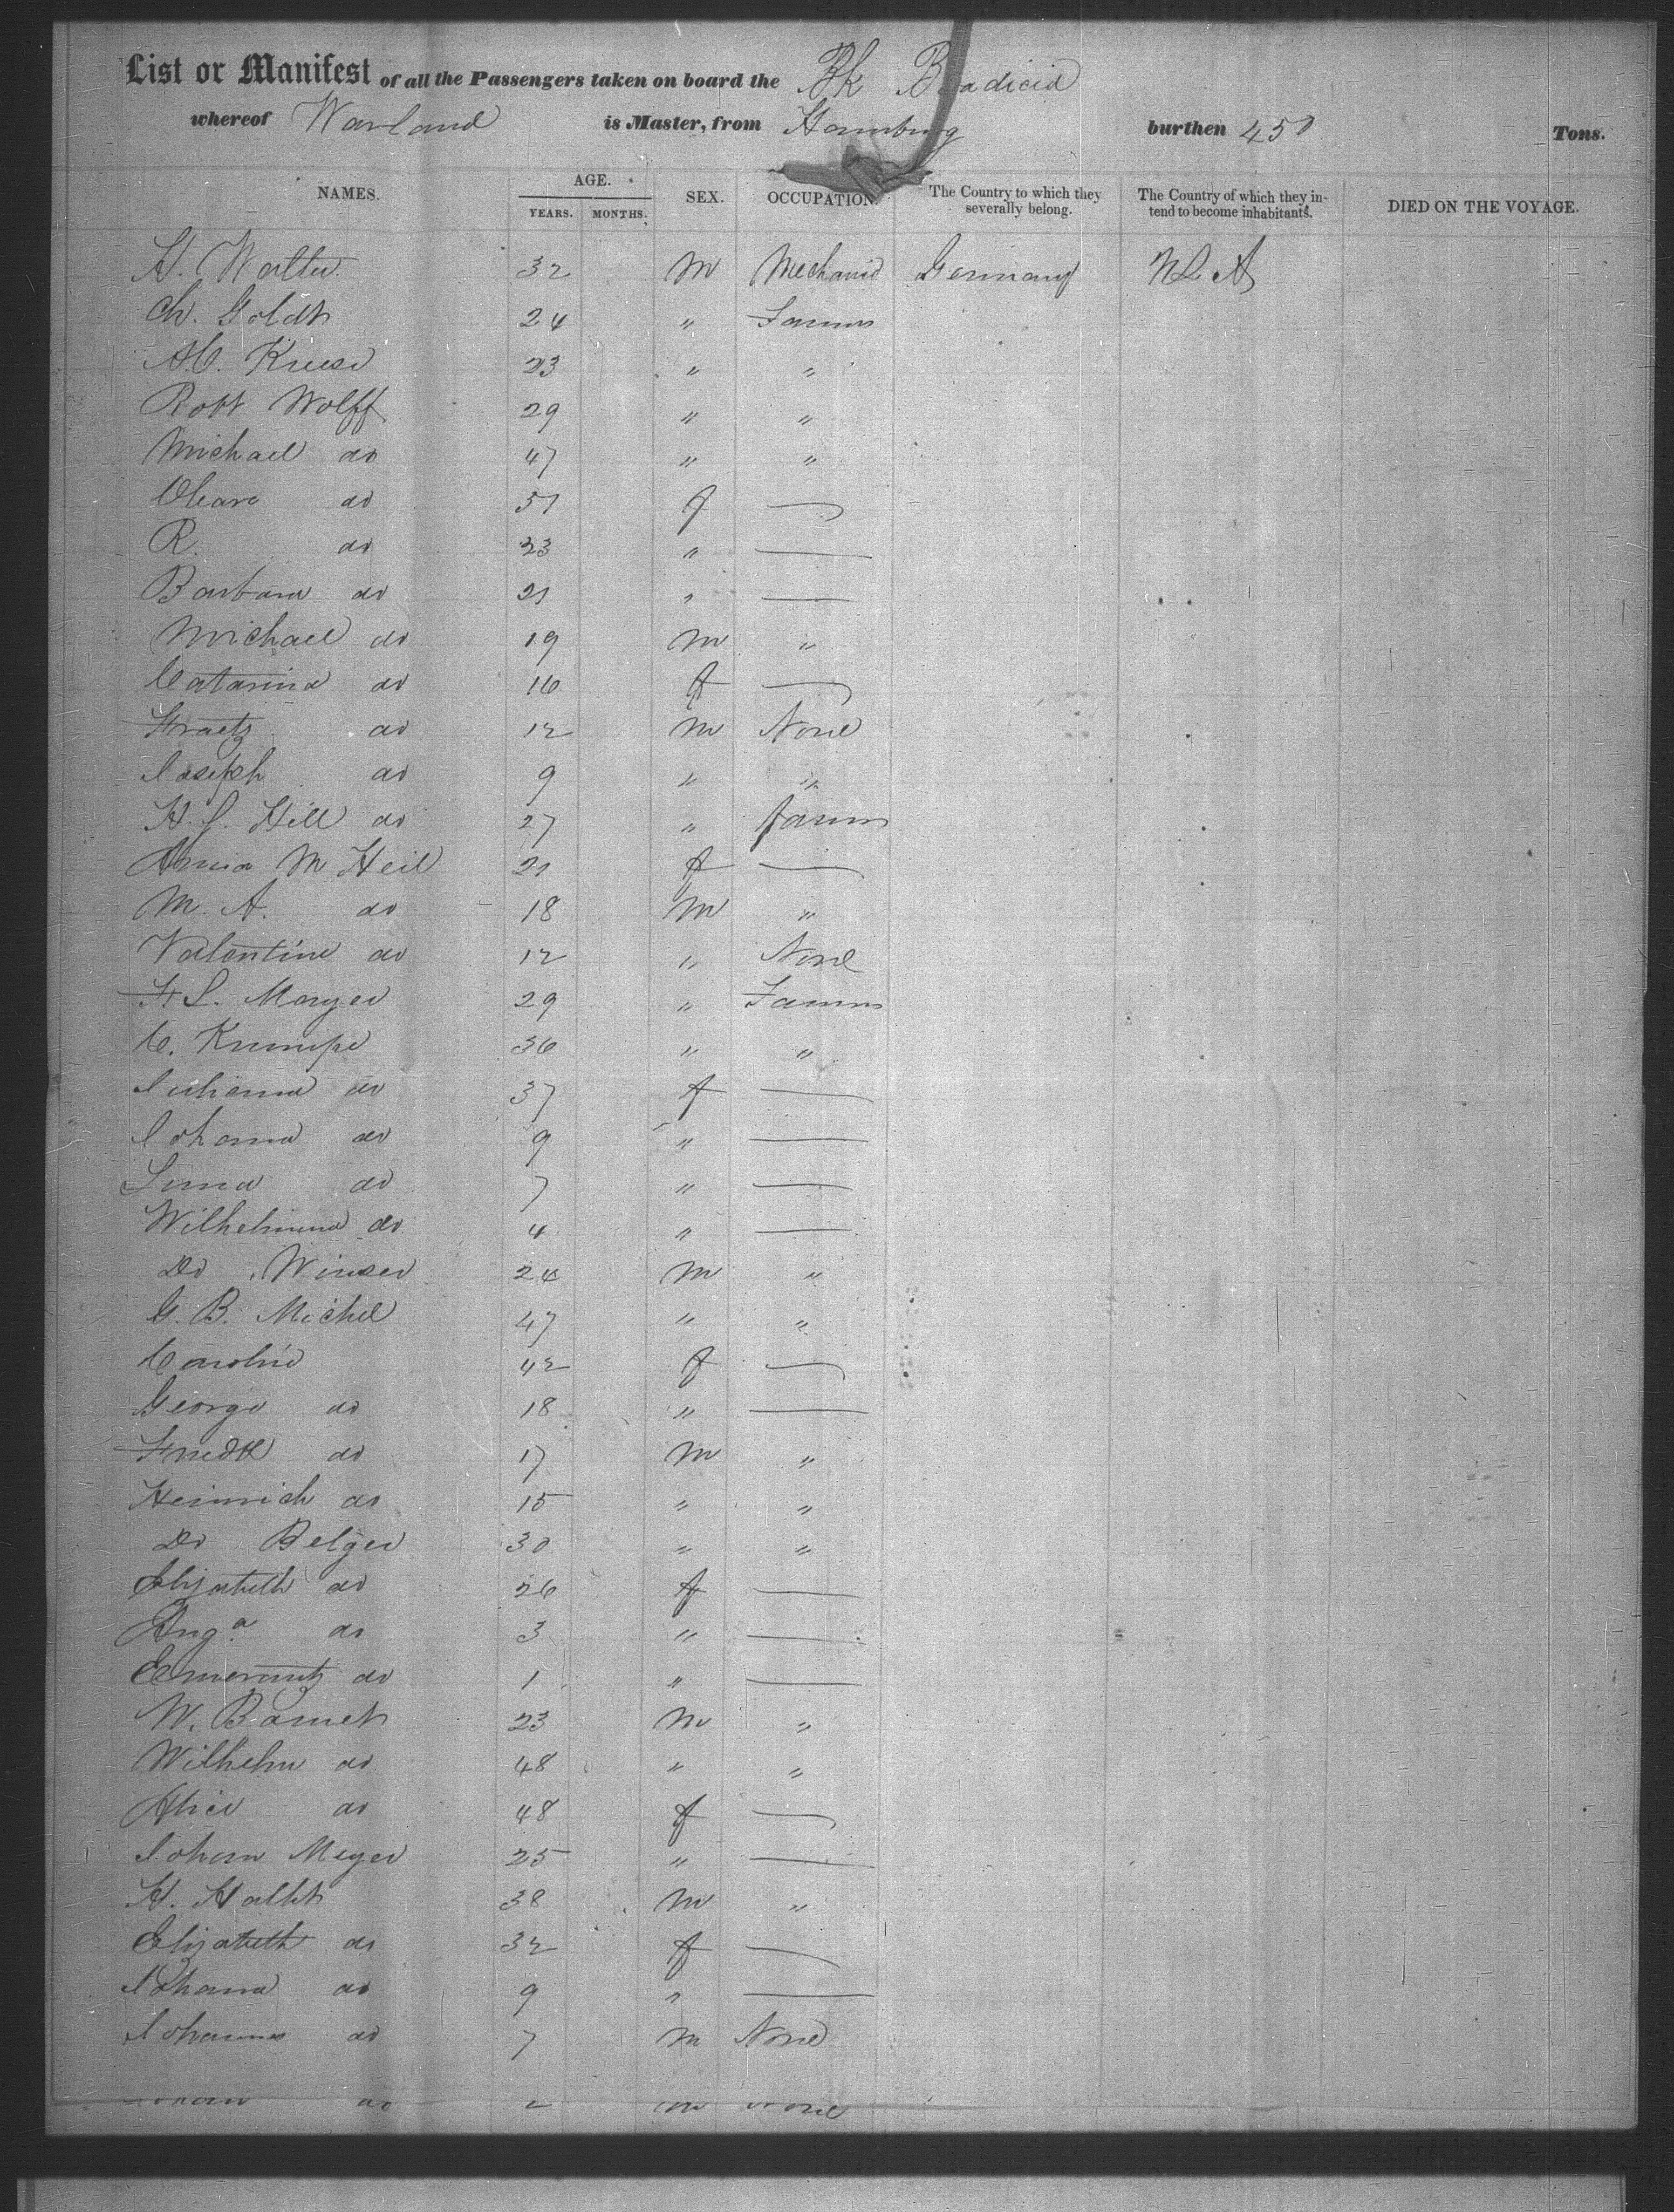 List or Manifest of all the Passengers taken on board the Bk
whereof Warland is Master, from Hamburg burthen 450 Tons.
NAMES. AGE. YEARS. MONTHS. SEX. OCCUPATION. The Country to which they severally belong. The Country of which they intend to become inhabitants. DIED ON THE VOYAGE.
H. Walter 32 M Mechanic Germany
Ch. Goldt 24 " Farmer
A.C. Kruse 23 " "
Robt Wolff 29 " "
Michael do 47 " "
do 51 f —
R. do 23 " —
Barbara do 21 " —
Michael do 19 M "
Catarina do 16 f —
do 12 M None
Joseph do 9 " "
H. J. Hill do 27 " Farmer
Anna M Heil 21 f —
M. A. do 18 M "
Valentine do 12 " None
F. L. Mayer 29 " Farmer
C. 36 " "
Juliana do 37 f —
Johana do 9 " —
do 7 " —
Wilhelmina do 4 " —
Do Winser 24 M "
G. B. Michel 47 " "
Carolin 42 f —
George do 18 " —
Friedk do 17 M "
Heinrich do 15 " "
Do Belger 30 " "
Elizabeth do 26 f —
Anga do 3 " —
Emerantz do 1 " —
W. 23 M "
Wilhelm do 48 " "
Alice do 48 f —
Johan Meyer 25 " —
H. 38 M "
Elizabeth do 32 f —
Johana do 9 " —
Johannes do 7 M None
do 2 M None